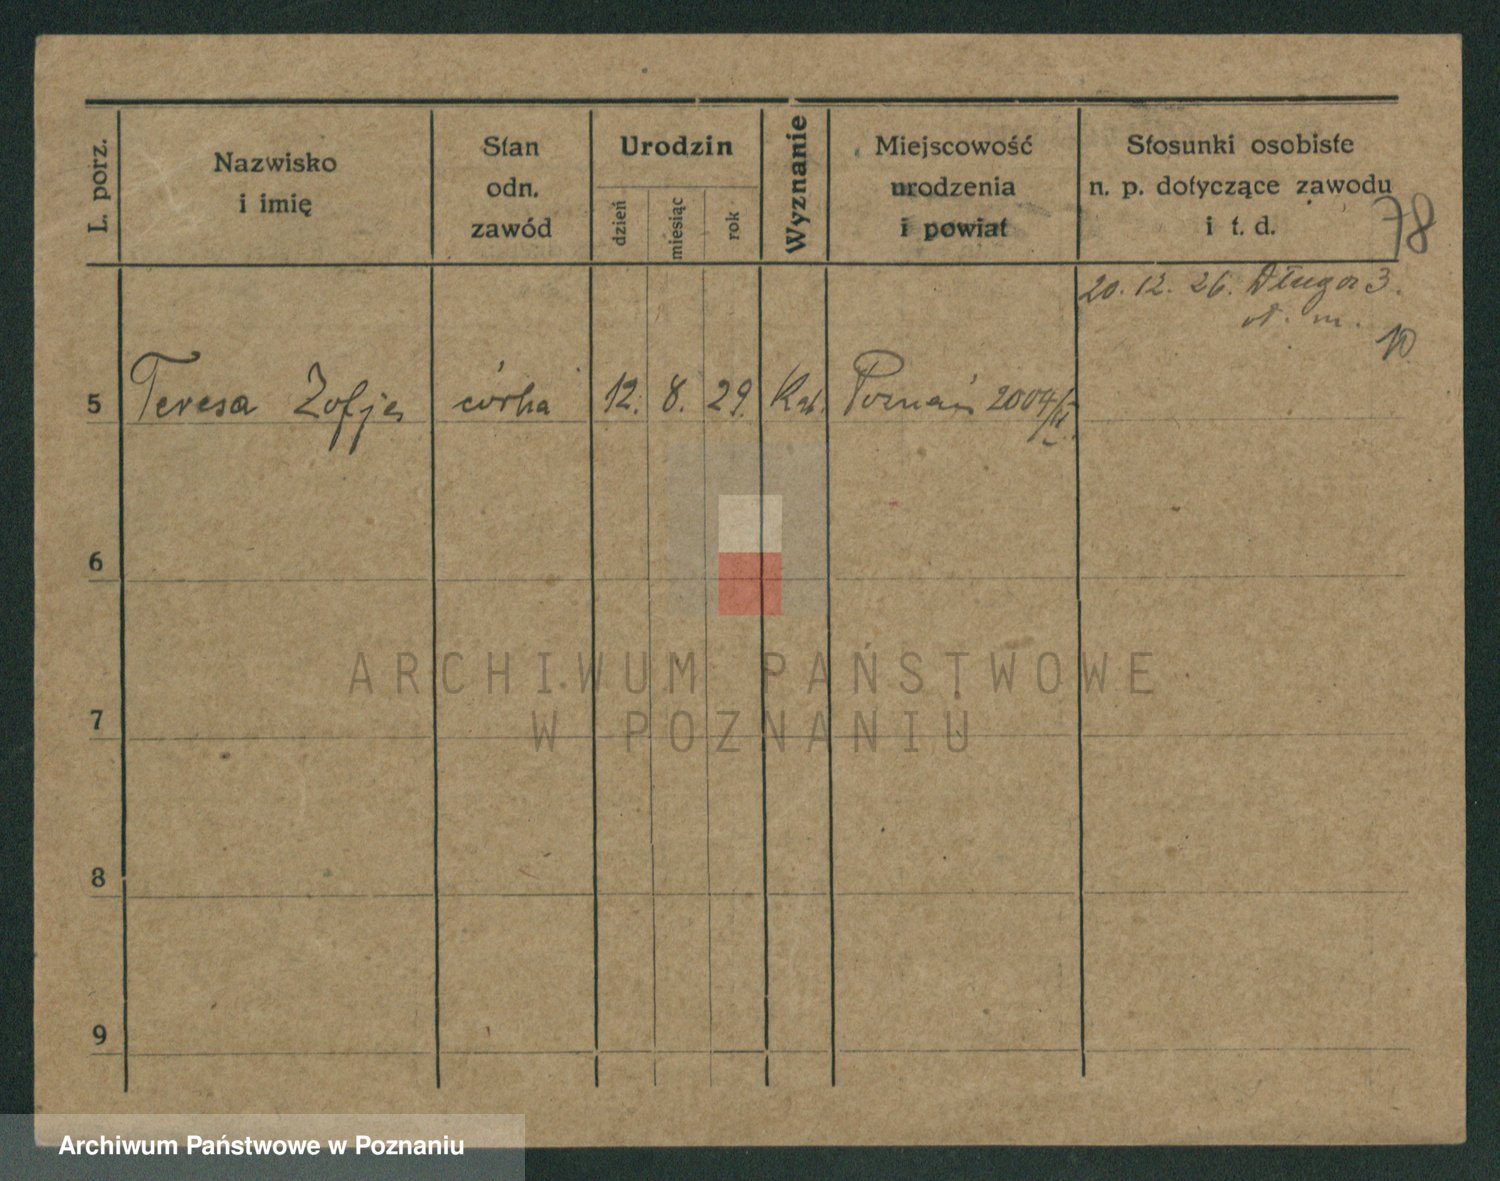 L. porz.
Nazwisko
i imię
Stan
odn.
zawód
Urodzin
dzień
miesiąc
rok
Wyznanie
Miejscowość
urodzenia
i powiat
Stosunki osobiste
n. p. dotyczące zawodu
i t. d.
78
20. 12. 26. Długa 3.
m.
10
5 Teresa Zofja córka 12. 8. 29. Kat. Poznań 2004/
6
7
8
9
ARCHIWUM PAŃSTWOWE
W POZNANIU
Archiwum Państwowe w Poznaniu